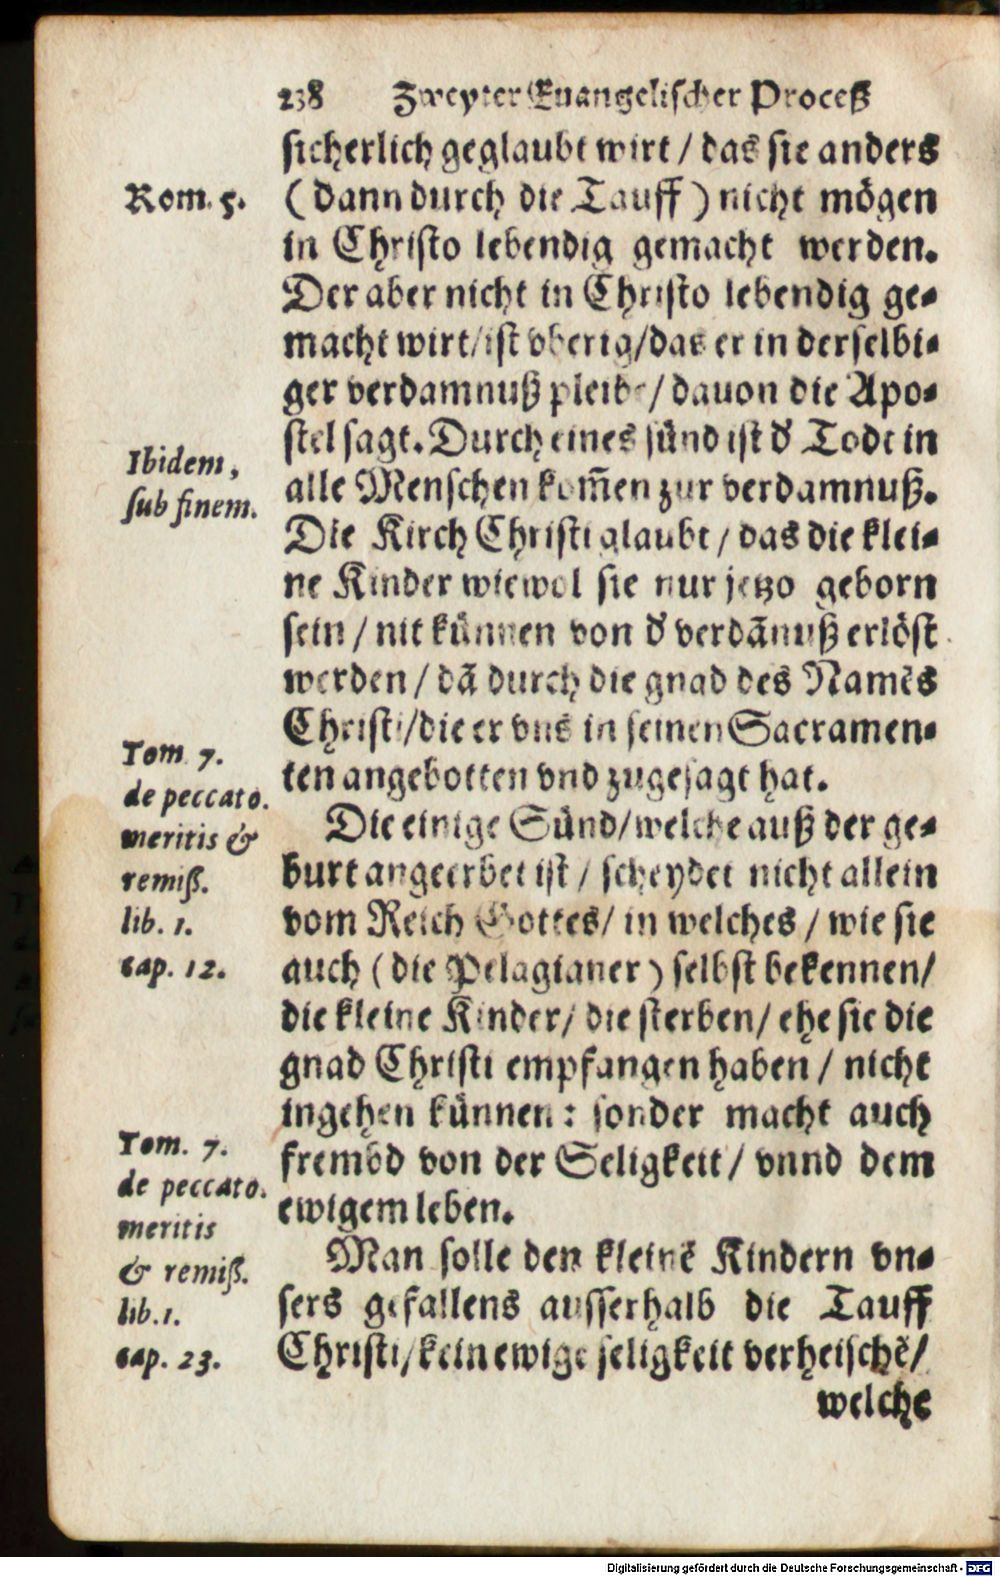 238 Zweyter Euangelischer Proceß
sicherlich geglaubt wirt / das sie anders
Rom. 5.
( dann durch die Tauff ) nicht mögen
in Christo lebendig gemacht werden.
Der aber nicht in Christo lebendig ge-
macht wirt/ist vberig/das er in derselbi-
ger verdamnuß pleibe / dauon die Apo-
stel sagt. Durch eines sünd ist d' Todt in
Ibidem,
sub finem.
alle Menschen kom̃en zur verdamnuß.
Die Kirch Christi glaubt / das die klei-
ne Kinder wiewol sie nur jetzo geborn
sein / nit künnen von d' verdãnuß erlöst
werden / dã durch die gnad des Namẽs
Christi/die er vns in seinen Sacramen-
ten angebotten vnd zugesagt hat.
Tom 7.
de peccato.
meritis &
remiß.
lib. 1.
cap. 12.
Die einige Sünd/welche auß der ge-
burt angeerbet ist / scheydet nicht allein
vom Reich Gottes/ in welches / wie sie
auch ( die Pelagianer ) selbst bekennen/
die kleine Kinder/ die sterben/ ehe sie die
gnad Christi empfangen haben / nicht
ingehen künnen: sonder macht auch
frembd von der Seligkeit/ vnnd dem
ewigem leben.
Tom. 7.
de peccato.
meritis
& remiß.
lib. 1.
cap. 23.
Man solle den kleinẽ Kindern vn-
sers gefallens ausserhalb die Tauff
Christi/kein ewige seligkeit verheischẽ/
welche
Digitalisierung gefördert durch die Deutsche Forschungsgemeinschaft - DFG